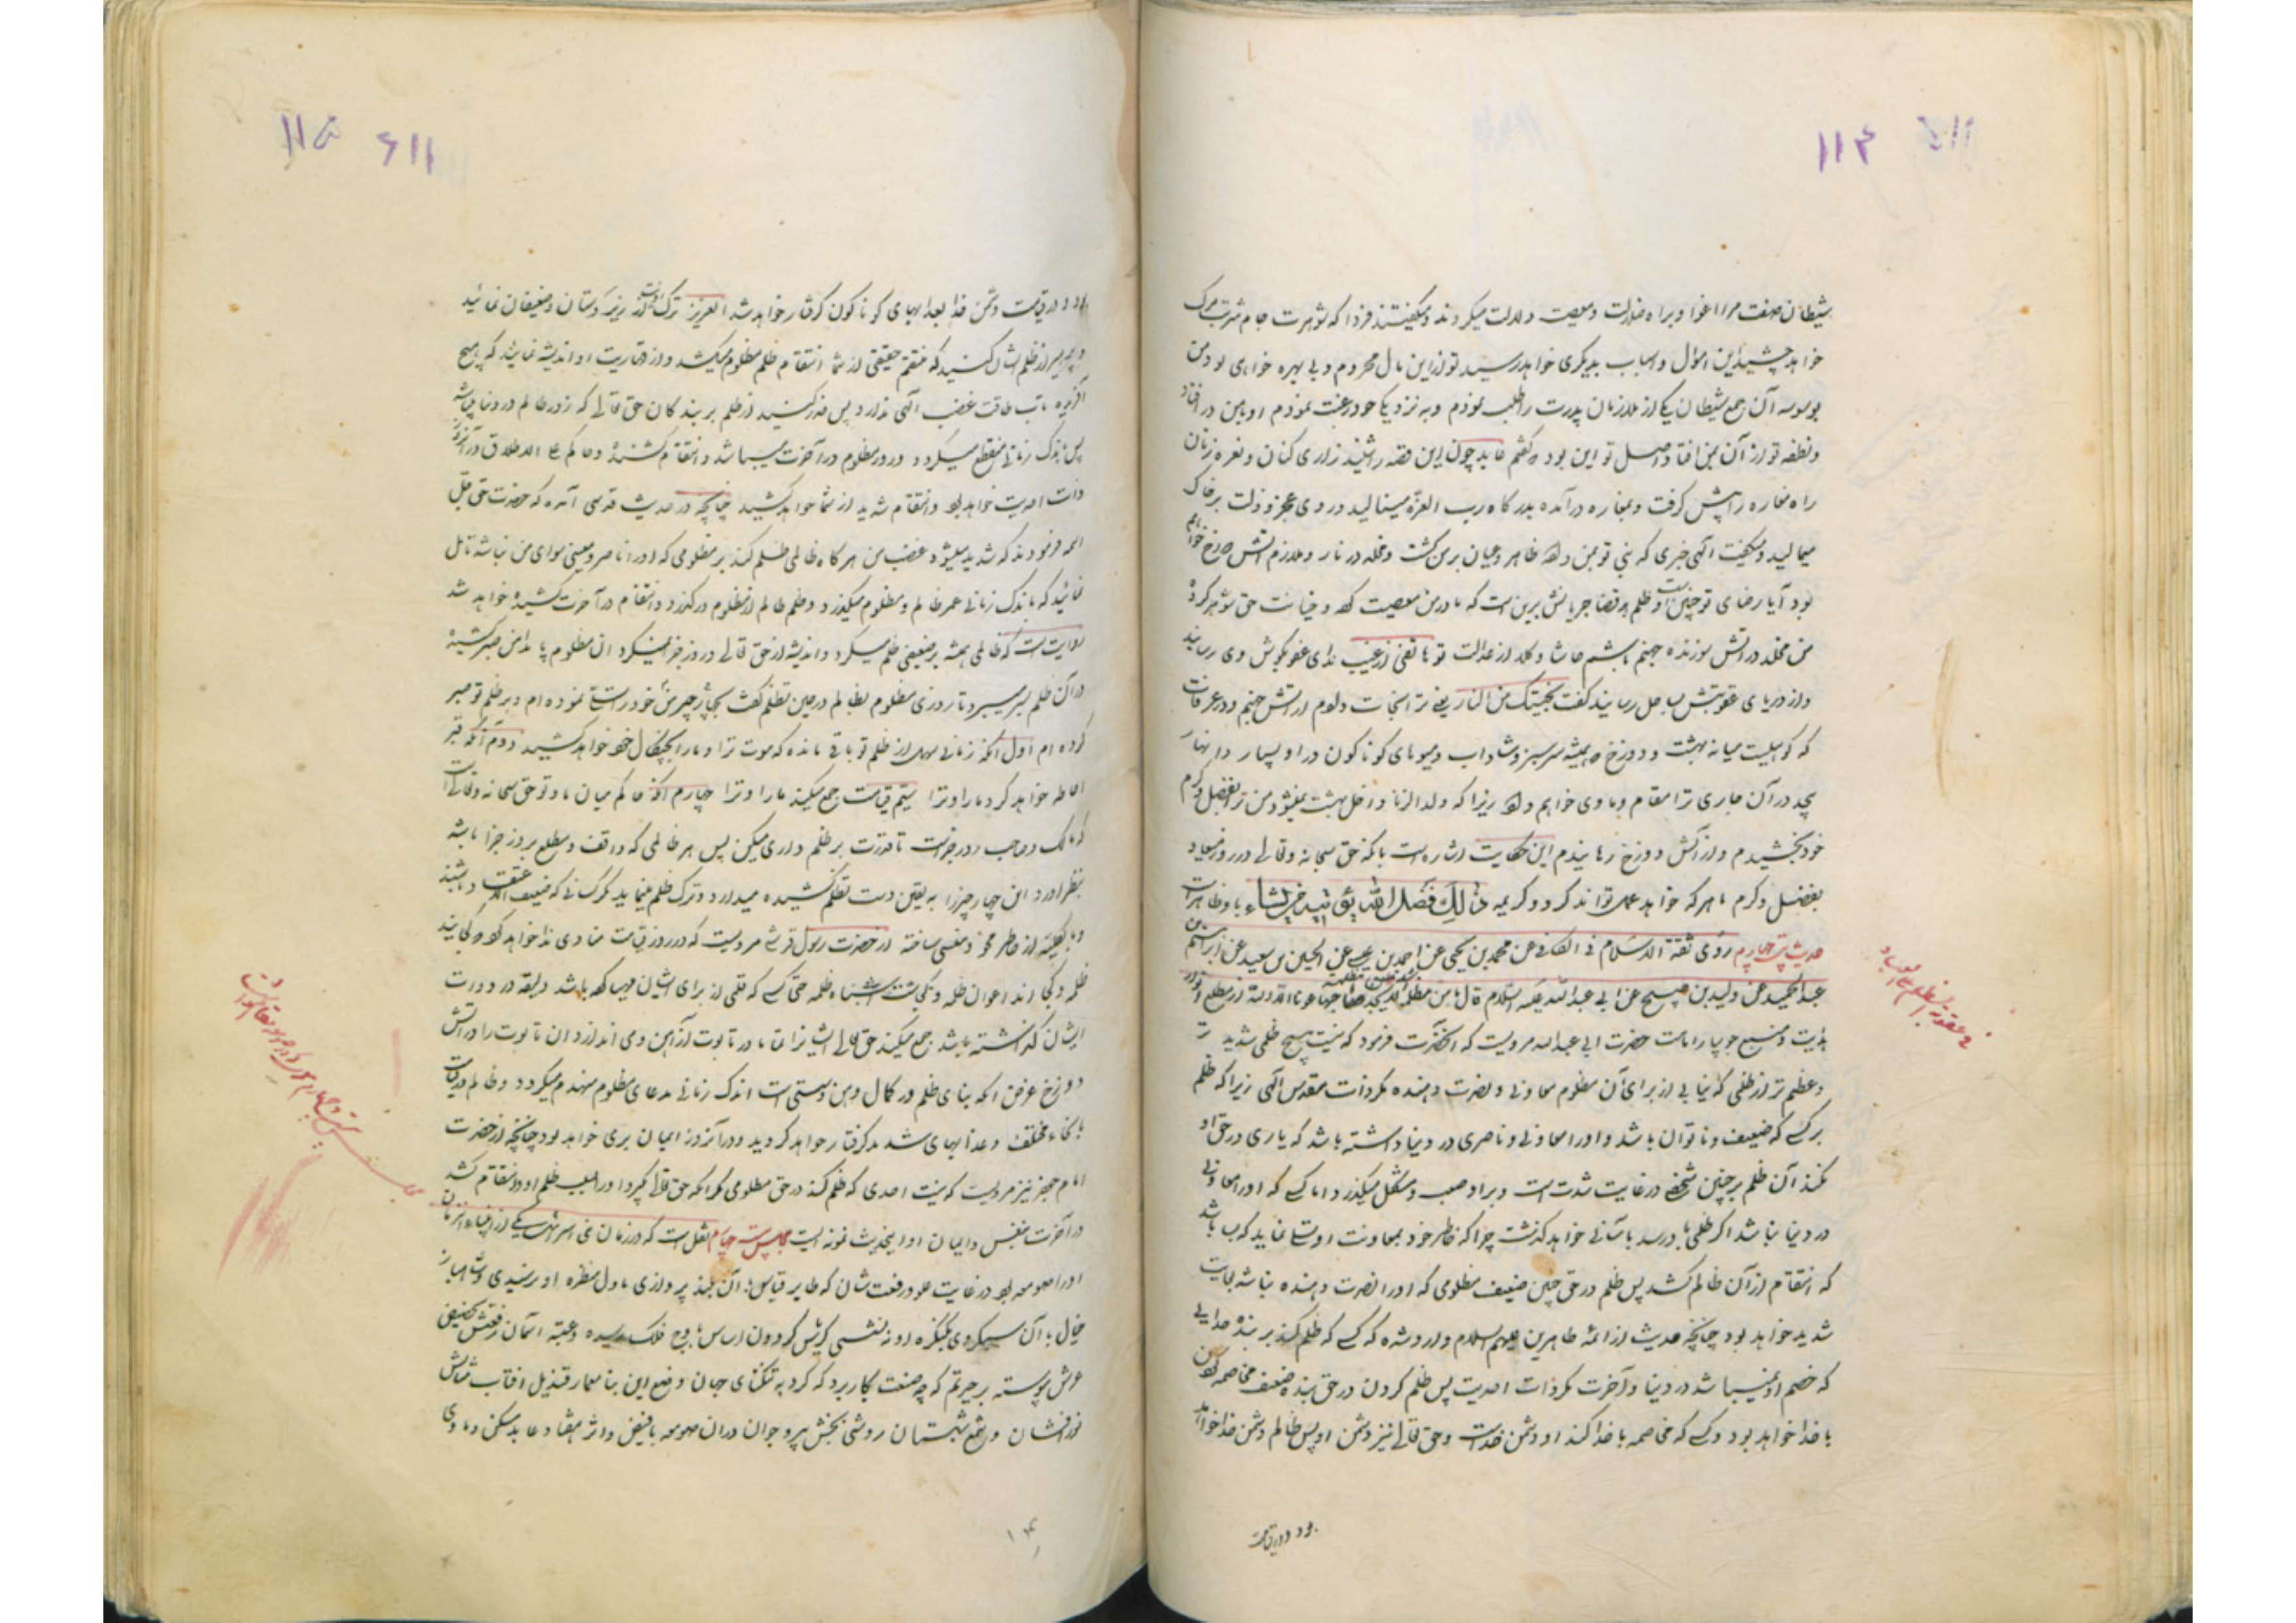 ۱۱۴
شیطان صفت مرا اغوا و براه ضلالت و معصیت دلالت میکردند و میگفتند فردا که شوهرت جام شربت مرگ
خواهد چشید این اموال و اسباب بدیگری خواهد رسید تو از این مال محروم و بی بهره خواهی بود من
بوسوسه آن جمع شیطان یکی از ملازمان پدرت را طلب نمودم و به نزدیکی خود رغبت نمودم او بامن در افتاد
و نطفه تو از آن بمن افتاد اصل تو این بود که گفتم عابد چون این قصه را شنید زاری کنان و نعره زنان
راه مغاره را پیش گرفت و بمغاره درآمده بدرگاه رب العزة مینالید و روی عجز و ذلت بر خاک
میمالید و میگفت الهی خبری که نبی تو بمن داد ظاهر و عیان بر من گشت و مخلد در نار و ملازم آتش دوزخ خواهم
بود آیا رضای تو چنین است و ظلم بر قضا جریانش برین است که مادر من معصیت کند و خیانت حق شوهر کرده
من مخلد در آتش سوزنده جهنم باشم حاشا و کلا از عدالت تو هاتفی از غیب ندای عفو بگوش وی رسانید
و از دریای عقوبتش بساحل رسانید گفت نجیتک من النار یعنی ترا نجات دادم از آتش جهنم و در اعراف
که کوهیست میانه بهشت و دوزخ همیشه سرسبز و شاداب و میوهای گوناگون در او بسیار و انهار
بیحد در آن جاری ترا مقام و ماوی خواهم داد زیرا که ولد الزنا داخل بهشت نمیشود من ترا بفضل و کرم
خود بخشیدم و از آتش دوزخ رهانیدم این حکایت اشاره است بانکه حق سبحانه و تعالی در روز میعاد
بفضل و کرم با هر که خواهد عمل تواند کرد و کریمه ذٰلِكَ فَضْلُ اللّٰهِ يُؤْتِيهِ مَنْ يَشَاءُ باو ظاهر است
حدیث چهارم روی ثقة الاسلام فی الکافی عن محمد بن یحیی عن احمد بن عیسی عن الحسین بن سعید عن ابراهیم
عبد الحمید عن ولید بن صبیح عن ابی عبدالله علیه السلام قال ما من مظلمة اشد من مظلمة لا یجد صاحبها عونا الا الله از مطلع انوار
هدایت و منبع جویبار امامت حضرت ابی عبدالله مرویست که آنحضرت فرمود که نیست هیچ ظلمی شدید تر
و عظیم تر از ظلمی که نیابی از برای آن مظلوم معاونی و نصرت دهنده مگر ذات مقدس الهی زیرا که ظلم
بر کسی که ضعیف و ناتوان باشد و او را معاونی و ناصری در دنیا داشته باشد که یاری در حق او
نکند آن ظلم بر چنین شخصی در غایت شدت است و بر او صعب و مشکل میگذرد اما کسی که او را معاونی
در دنیا باشد اگر ظلمی باو رسد بآسانی خواهد گذشت چرا که خاطر خود بمعاونت او تسلی نماید که باشد
که انتقام از آن ظالم کشد پس ظلم در حق چنین ضعیف مظلومی که او را نصرت دهنده نباشد بغایت
شدید خواهد بود چنانچه حدیث از ائمه طاهرین علیهم السلام وارد شده که کسی که ظلم کند بر بنده خدایی
که خصم او نمیباشد در دنیا و آخرت مگر ذات احدیت پس ظلم کردن در حق بنده ضعیف مخاصمه کردن
با خدا خواهد بود و کسی که مخاصمه با خدا کند او دشمن خداست و حق تعالی نیز دشمن او پس ظالم دشمن خدا خواهد
بود و در قیامت
۱۱۵
بود و در قیامت دشمن خدا بعذابهای گوناگون گرفتار خواهد شد ای عزیز ترک اذیت زیردستان و ضعیفان نمائید
و پرهیز از ظلم ایشان کنید که منتقم حقیقی از شما انتقام ظلم مظلوم میکشد و از قهاریت او اندیشه نمائید که هیچ
آفریده تاب طاقت غضب الهی ندارد پس حذر کنید از ظلم بر بندگان حق تعالی که زور ظالم در دنیا میباشد
پس باندک زمانی منقطع میگردد و زور مظلوم در آخرت میباشد و انتقام کشنده و حاکم علی الاطلاق در آنروز
ذات احدیت خواهد بود و انتقام شدید از شما خواهد کشید چنانچه در حدیث قدسی آمده که حضرت حق جل
اسمه فرمودند که شدید میشود غضب من هرگاه ظالمی ظلم کند بر مظلومی که او را ناصر و معینی سوای من نباشد تامل
نمائید که باندک زمانی عمر ظالم و مظلوم میگذرد و ظلم ظالم از مظلوم درگذرد و انتقام در آخرت کشیده خواهد شد
روایت است که ظالمی همیشه بر ضعیفی ظلم میکرد و اندیشه از حق تعالی و روز جزا نمیکرد آن مظلوم پا بدامن صبر کشیده
در آن ظلم بسر میبرد تا روزی مظلوم بظالم در حین تظلم گفت بچهار چیز من خود را تسلی نموده ام و بر ظلم تو صبر
کرده ام اول آنکه زمانی سهل از ظلم تو باقی مانده که موت ترا و ما را بچنگال خود خواهد کشید دوم آنکه قبر
احاطه خواهد کرد ما را و ترا سیم قیامت جمع میکند ما را و ترا چهارم آنکه حاکم میان ما و تو حق سبحانه و تعالی است
که مالک و صاحب روز جزاست تا قدرت بر ظلم داری میکن پس هر ظالمی که واقف و مطلع بروز جزا باشد
بنظر آورد این چهار چیز را به یقین دست تظلم کشیده میدارد و ترک ظلم مینماید
از حضرت رسول قرشی مرویست که در روز قیامت منادی ندا خواهد کرد که کجایند
ظلمه و کجایند اعوان ظلمه و کجاست اشباه ظلمه حتی کسی که قلمی از برای ایشان مهیا کرده باشد و لیقه در دوات
ایشان گذاشته باشد جمع میکند حق تعالی ایشانرا تمام در تابوت از آهن و می اندازد آن تابوت را در آتش
دوزخ غرض آنکه بنای ظلم در کمال وهن و سستی است اندک زمانی بدعای مظلوم منهدم میگردد و ظالم در قیامت
بانحاء مختلف و عذابهای شدید گرفتار خواهد گردید و در آنروز از ایمان بری خواهد بود چنانچه از حضرت
امام جعفر نیز مرویست که نیست احدی که ظلم کند در حق مظلومی مگر آنکه حق تعالی بگیرد او را بسبب ظلم او و انتقام کشد
در آخرت بنفس و ایمان او اینحدیث نمونه ایست مجلس بیست و چهارم نقل است که در زمان بنی اسرائیل یکی از انبیاء آنزمان
او را صومعه بود در غایت علو و رفعت شان که طایر قیاس با آن بلند پروازی باول منظره او نرسیدی و شاهباز
خیال با آن سبکروی بکنگره او ننشستی کریاس گردون اساس باوج فلک رسیده و عتبه آسمان رفعتش
عرش پیوسته بر حیرتم که چه صنعت بکار برد که کرد به تنگنای جهان وضع این بنا معمار قندیل آفتاب مثالش
نورافشان و شمع شبستان روشنی بخش پیر و جوان در آن صومعه بافیض و اثر هفتاد عابد مسکن و ماوی